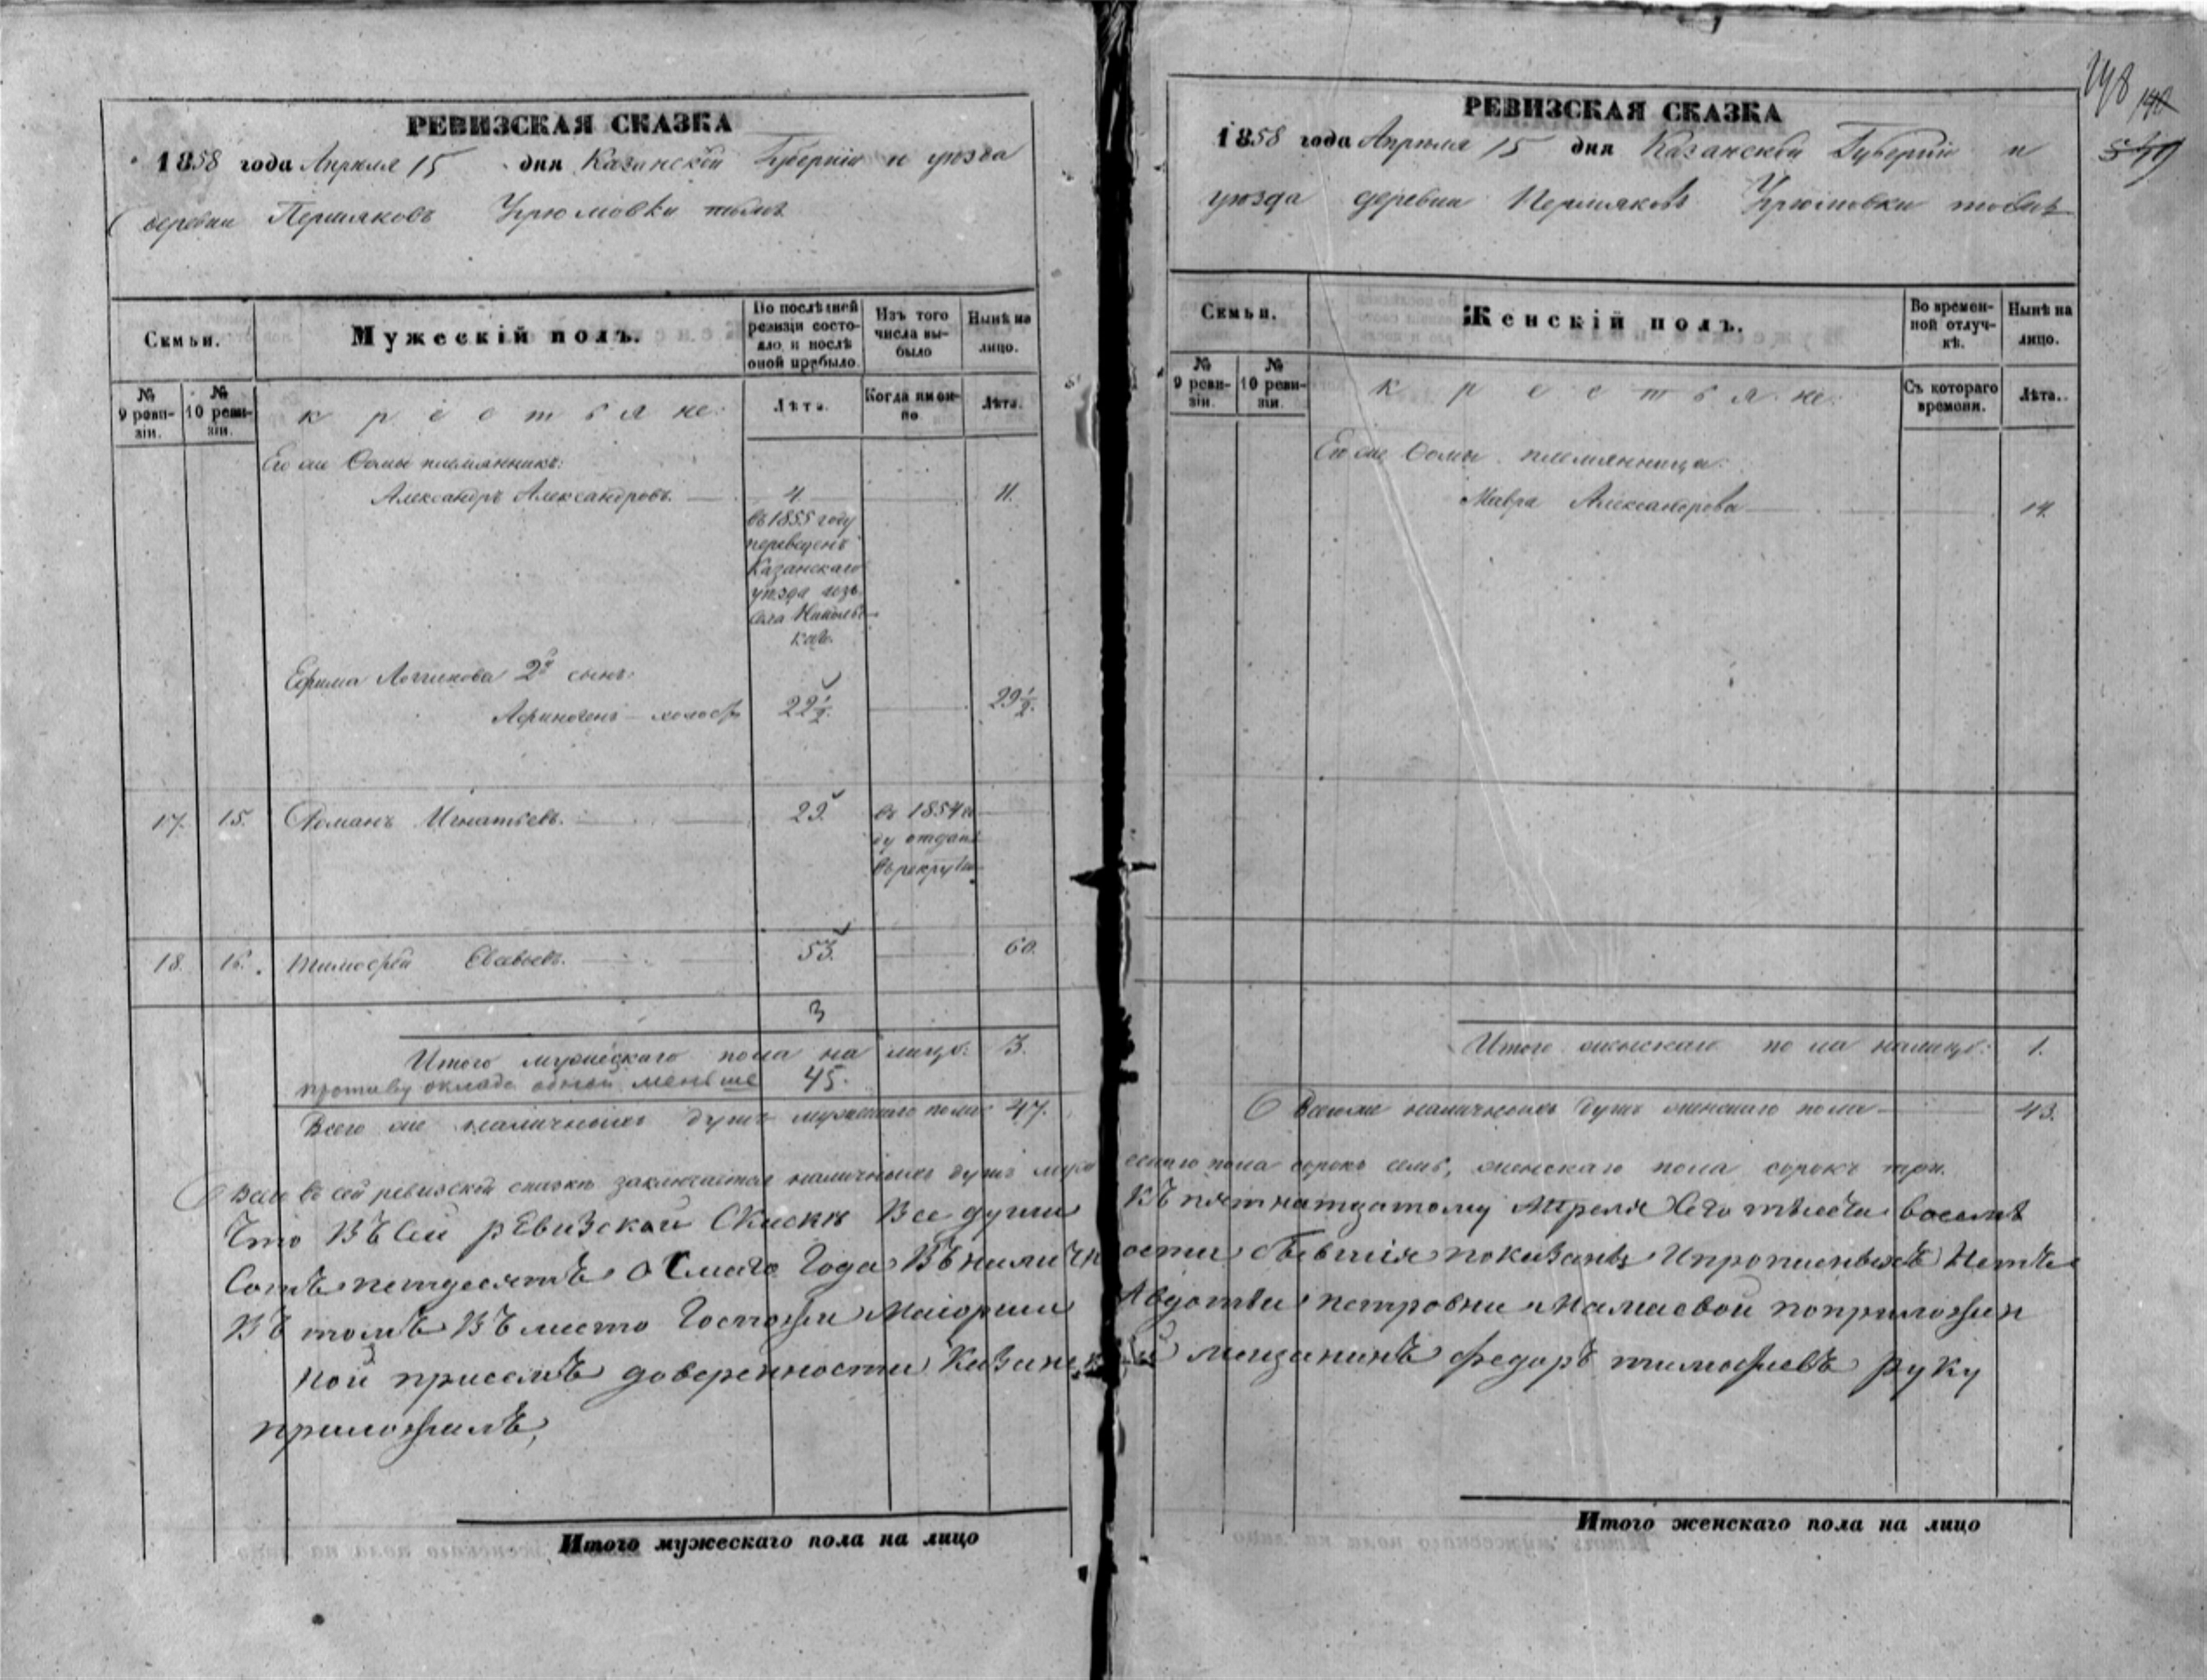 РЕВИЗСКАЯ СКАЗКА
1858 года Апреля 15 дня Казанской Губерніи и уѣзда
деревни Пермяковъ Угрюмовки тожъ
Семьи.
Мужескій полъ.
По послѣдней ревизіи состояло и послѣ оной прибыло.
Изъ того числа выбыло
Нынѣ на лицо.
№ 9 ревизіи.
№ 10 ревизіи.
крестьяне:
Лѣта.
Когда именно.
Лѣта.
Его же Фомы племянникъ:
Александръ Александровъ. 4 11.
въ 1855 году
переведенъ
Казанскаго
уѣзда изъ
села Никольс-
каго.
Ефима Логинова 2й сынъ:
Афиногенъ холостъ 22½. 29½.
17. 15. Романъ Игнатьевъ. 29. въ 1854 го-
ду отданъ
въ рекруты
18. 16. Тимофей Евсевьевъ. 53. 60.
3
Итого мужескаго пола на лицо: 3.
противу оклада одной меньше 45.
Всего же наличныхъ душъ мужескаго пола 47.
РЕВИЗСКАЯ СКАЗКА
1858 года Апреля 15 дня Казанской Губерніи и
уѣзда деревни Пермяковъ Угрюмовки тожъ
148
Семьи.
Женскій полъ.
Во временной отлучкѣ.
Нынѣ на лицо.
№ 9 ревизіи.
№ 10 ревизіи.
крестьяне:
Съ котораго времени.
Лѣта.
Его же Фомы племянница:
Мавра Александрова 14.
Итого женскаго пола на лицо: 1.
Всего же наличныхъ душъ женскаго пола 43.
Всего въ сей ревизской сказкѣ заключается наличныхъ душъ мужескаго пола сорокъ семь, женскаго пола сорокъ три.
Что Въ Сей рЕвизской Скаскѣ Все души Къ пятнатцатому Апреля Сего тысеча восемъ
Сотъ петдесятъ осмаго Года Въ наличности бывшія показаны И прописныхъ Нетъ
Въ томъ Въ место Госпожи Маіорши Авдотьи петровны Мамаевой по приложен
ной присемъ доверенности Казанской мещанинъ федоръ тимофиевъ руку
приложилъ,
Итого мужескаго пола на лицо
Итого женскаго пола на лицо